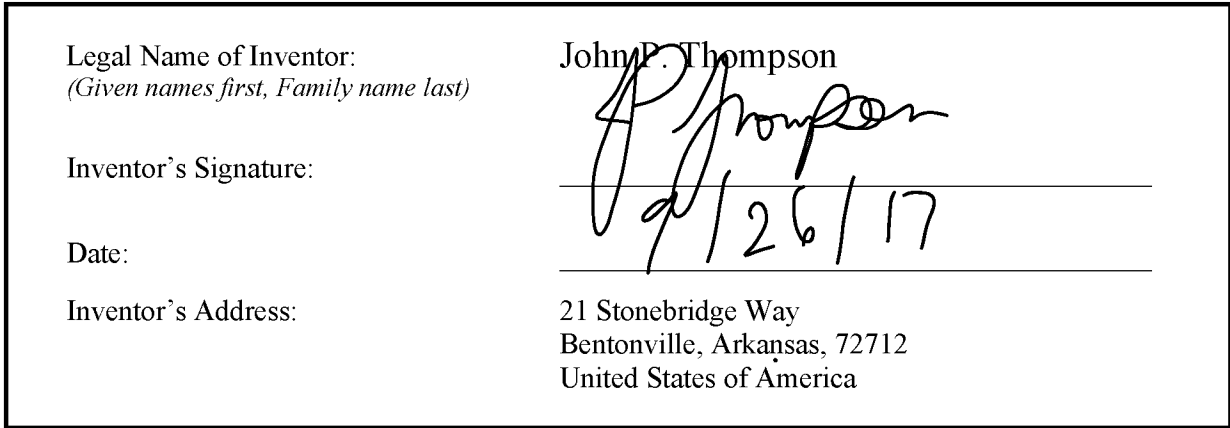 Legal Name of Inventor: John P. Thompson
(Given names first, Family name last)
JP Thompson
Inventor's Signature:
9/26/17
Date:
Inventor's Address: 21 Stonebridge Way
Bentonville, Arkansas, 72712
United States of America